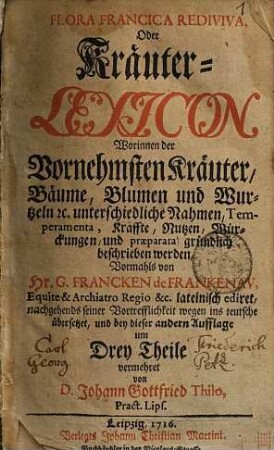 1
FLORA FRANCICA REDIVIVA,
Oder
Kräuter-
LEXICON
Worinnen der
Vornehmsten Kräuter/
Bäume, Blumen und Wur-
tzeln ꝛc. unterschiedliche Nahmen, Tem-
peramenta, Kräffte, Nutzen, Wür-
ckungen, und præparata gründlich
beschrieben werden,
Vormahls von
Hr. G. FRANCKEN de FRANKENAV,
Equite & Archiatro Regio &c. lateinisch ediret,
nachgehends seiner Vortrefflichkeit wegen ins teutsche
übersetzet, und bey dieser andern Aufflage
um
Carl Georg
Friederich
Drey Theile
vermehret
von
D. Johann Gottfried Thilo,
Pract. Lips.
Leipzig, 1716.
Verlegts Johann Christian Martini,